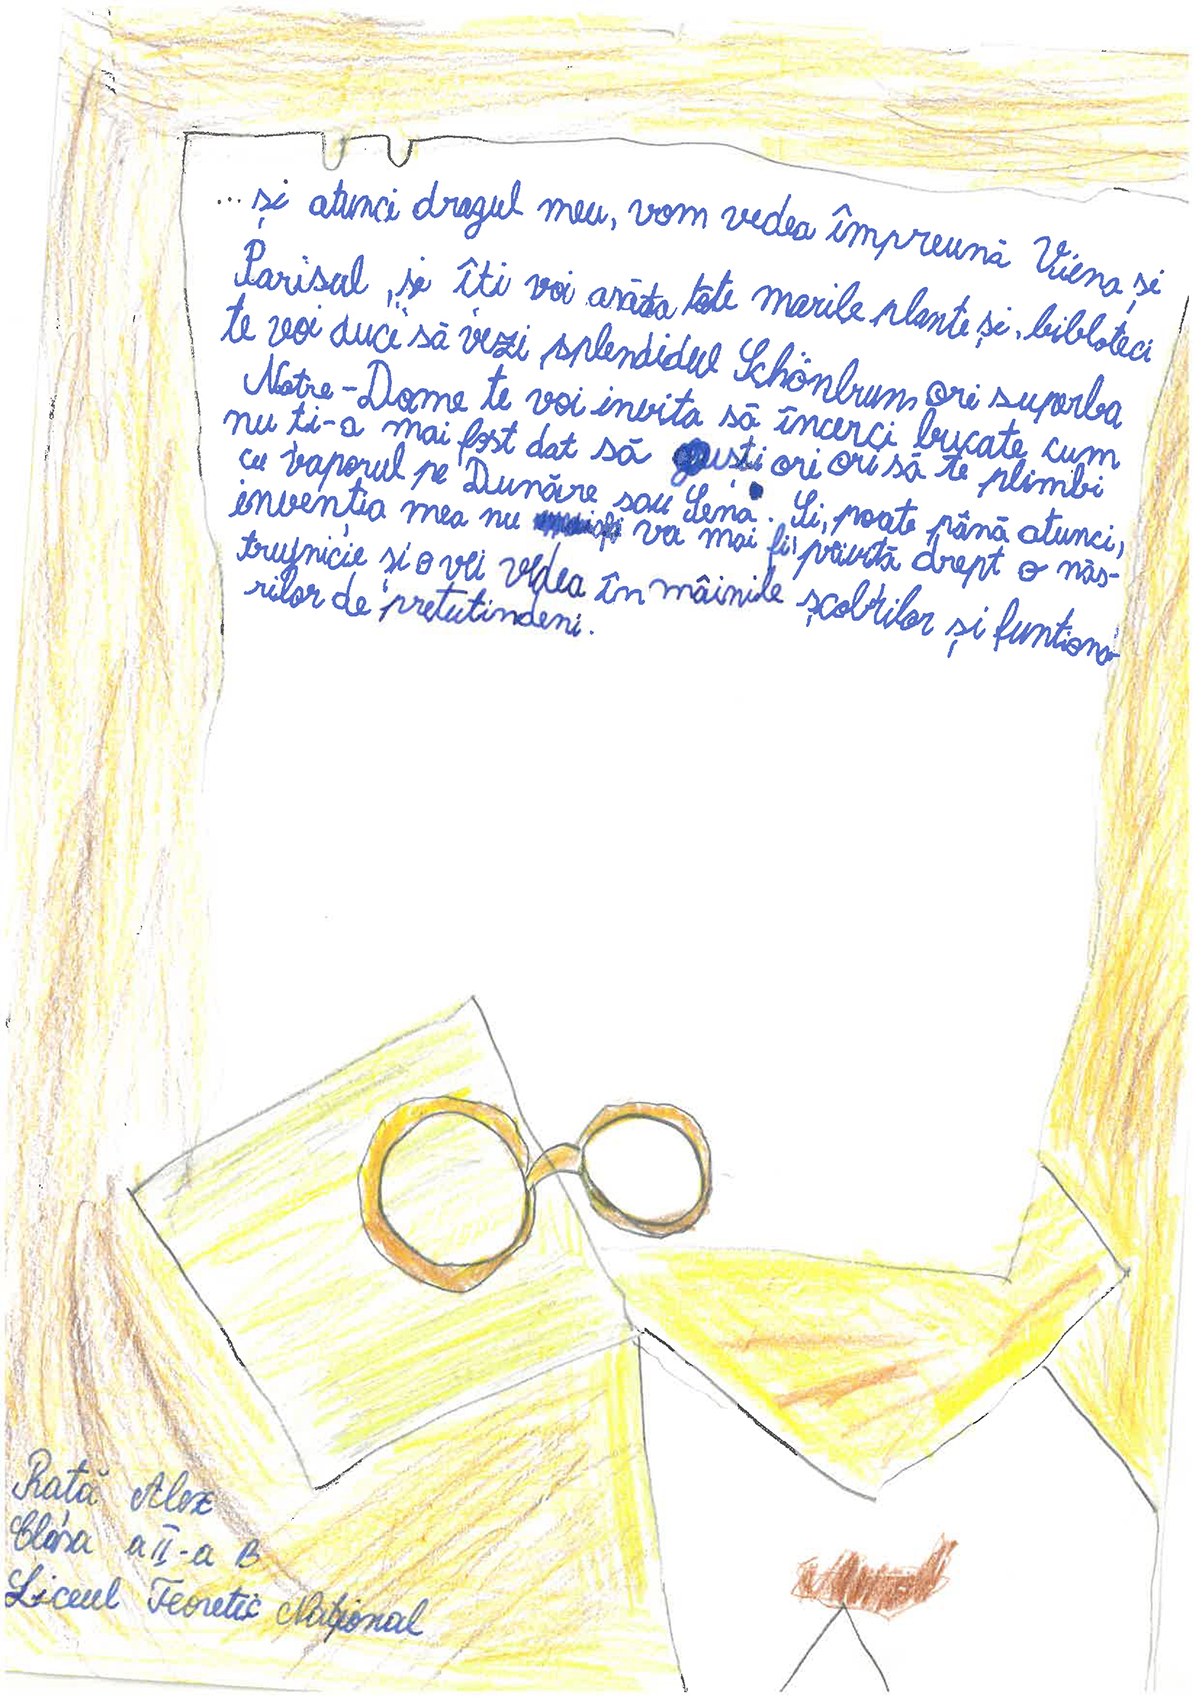 ...și atunci dragul meu, vom vedea împreună Viena și
Parisul, și îti voi arăta tote marile plante și, bibloteci
te voi duce să vezi splendidul Schönbrunn ori superba
Notre-Dame te voi invita să încerci bucate cum
nu ti-a mai fost dat să guști ori ori să te plimbi
cu vaporul pe Dunăre sau Sena. Și, poate până atunci,
invenția mea nu va mai fi, privită drept o năs-
trușnicie și o vei vedea în mâinile școlrilor și funtiona-
rilor de pretutindeni.
Rată Alex
Clasa a II-a B
Liceul Teoretic Național